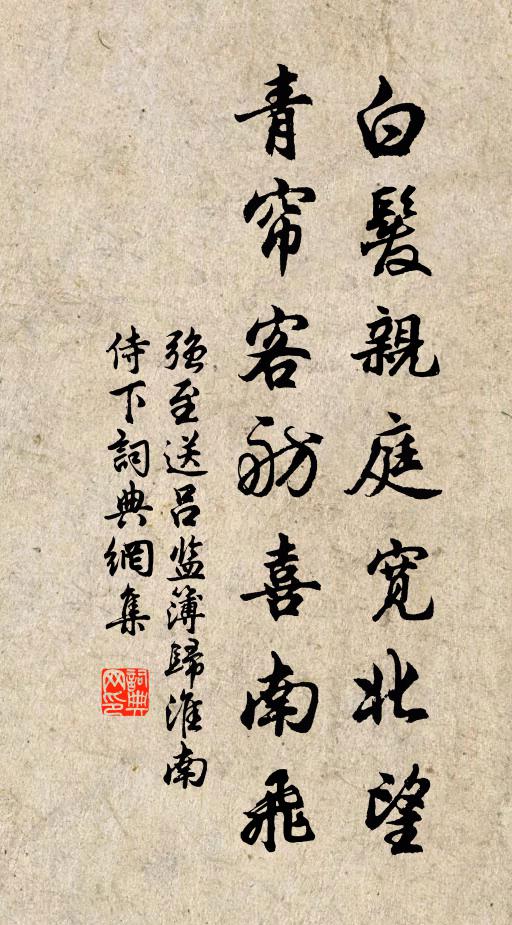 白髮親庭寬北望
青帘客舫喜南飛
強至送呂监簿歸淮南
侍下詞典網集
詞典网印